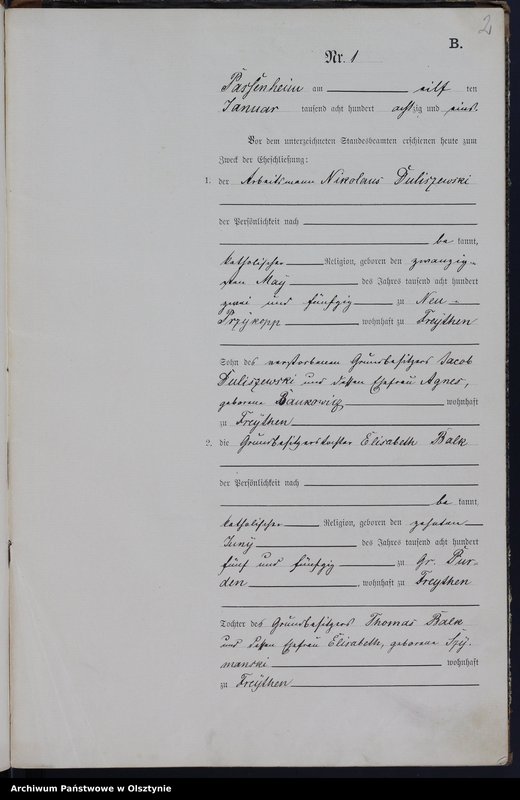 2
B.
Nr. 1
Passenheim am eilf ten
Januar tausend acht hundert achtzig und eins.
Vor dem unterzeichneten Standesbeamten erschienen heute zum
Zweck der Eheschließung:
1. der Arbeitsmann Nikolaus Duliszewski
der Persönlichkeit nach
be kannt,
katholischer Religion, geboren den zwanzig-
sten May des Jahres tausend acht hundert
zwei und fünfzig zu Neu-
Przykopp, wohnhaft zu Freythen
Sohn des verstorbenen Grundbesitzers Jacob
Duliszewski und dessen Ehefrau Agnes,
geborene Bankowicz wohnhaft
zu Freythen
2. die Grundbesitzerstochter Elisabeth Balk
der Persönlichkeit nach
be kannt,
katholischer Religion, geboren den zehnten
Juny des Jahres tausend acht hundert
fünf und fünfzig zu Gr. Pur-
den, wohnhaft zu Freythen
Tochter des Grundbesitzers Thomas Balk
und dessen Ehefrau Elisabeth, geborene Szy-
manski wohnhaft
zu Freythen
Archiwum Państwowe w Olsztynie